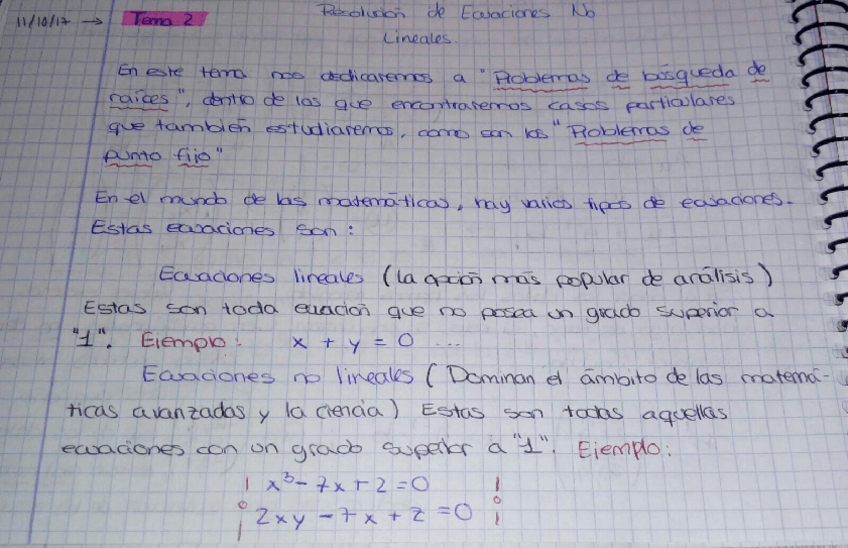 11/10/17 → Tema 2 Resolución de Ecuaciones No
Lineales
En este tema nos dedicaremos a "Problemas de búsqueda de
raíces", dentro de los que encontraremos casos particulares
que también estudiaremos, como son los "Problemas de
punto fijo"
En el mundo de las matemáticas, hay varios tipos de ecuaciones.
Estas ecuaciones son:
Ecuaciones lineales (La opción más popular de análisis)
Estas son toda ecuación que no posea un grado superior a
"1". Ejemplo: x + y = 0 ...
Ecuaciones no lineales (Dominan el ámbito de las matemá-
ticas avanzadas y la ciencia) Estas son todas aquellas
ecuaciones con un grado superior a "1". Ejemplo:
¡ x³ - 7x + 2 = 0 !
¡ 2xy - 7x + z = 0 !